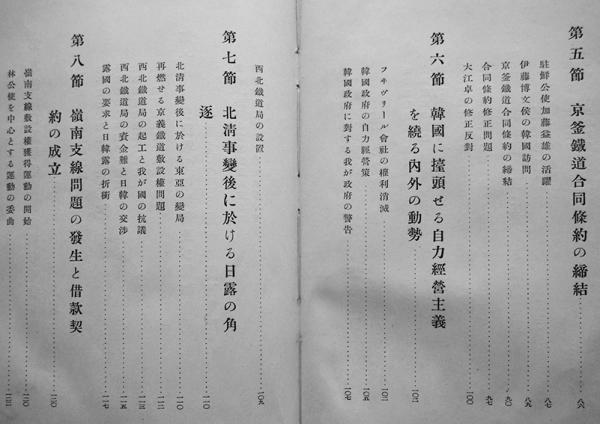 第五節 京釜鐵道合同條約の締結……八六
駐鮮公使加藤益雄の活躍……八六
伊藤博文侯の韓國訪問……八九
京釜鐵道合同條約の締結……九〇
合同條約修正問題……九七
大江卓の修正反對……一〇〇
第六節 韓國に擡頭せる自力經營主義
を繞る內外の動勢……一〇二
フキヴリール會社の權利消滅……一〇二
韓國政府の自力經營策……一〇五
韓國政府に對する我が政府の警告……一〇七
西北鐵道局の設置……一〇九
第七節 北淸事變後に於ける日露の角
逐……一一〇
北淸事變後に於ける東亞の變局……一一〇
再燃せる京義鐵道敷設權問題……一一二
西北鐵道局の起工と我が國の抗議……一一三
西北鐵道局の資金難と日韓の交涉……一一五
露國の要求と日韓露の折衝……一一七
第八節 嶺南支線問題の發生と借款契
約の成立……一二〇
嶺南支線敷設權獲得運動の開始……一二〇
林公使を中心とする運動の委曲……一二二